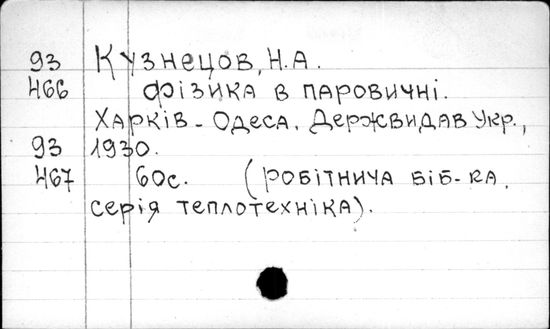 93 Кузнецов, Н.А.
466 Фізика в паровичні.
Харків - Одеса, Державидав Укр.,
93 1930.
467 60с. (Робітнича біб-ка,
серія теплотехніка).